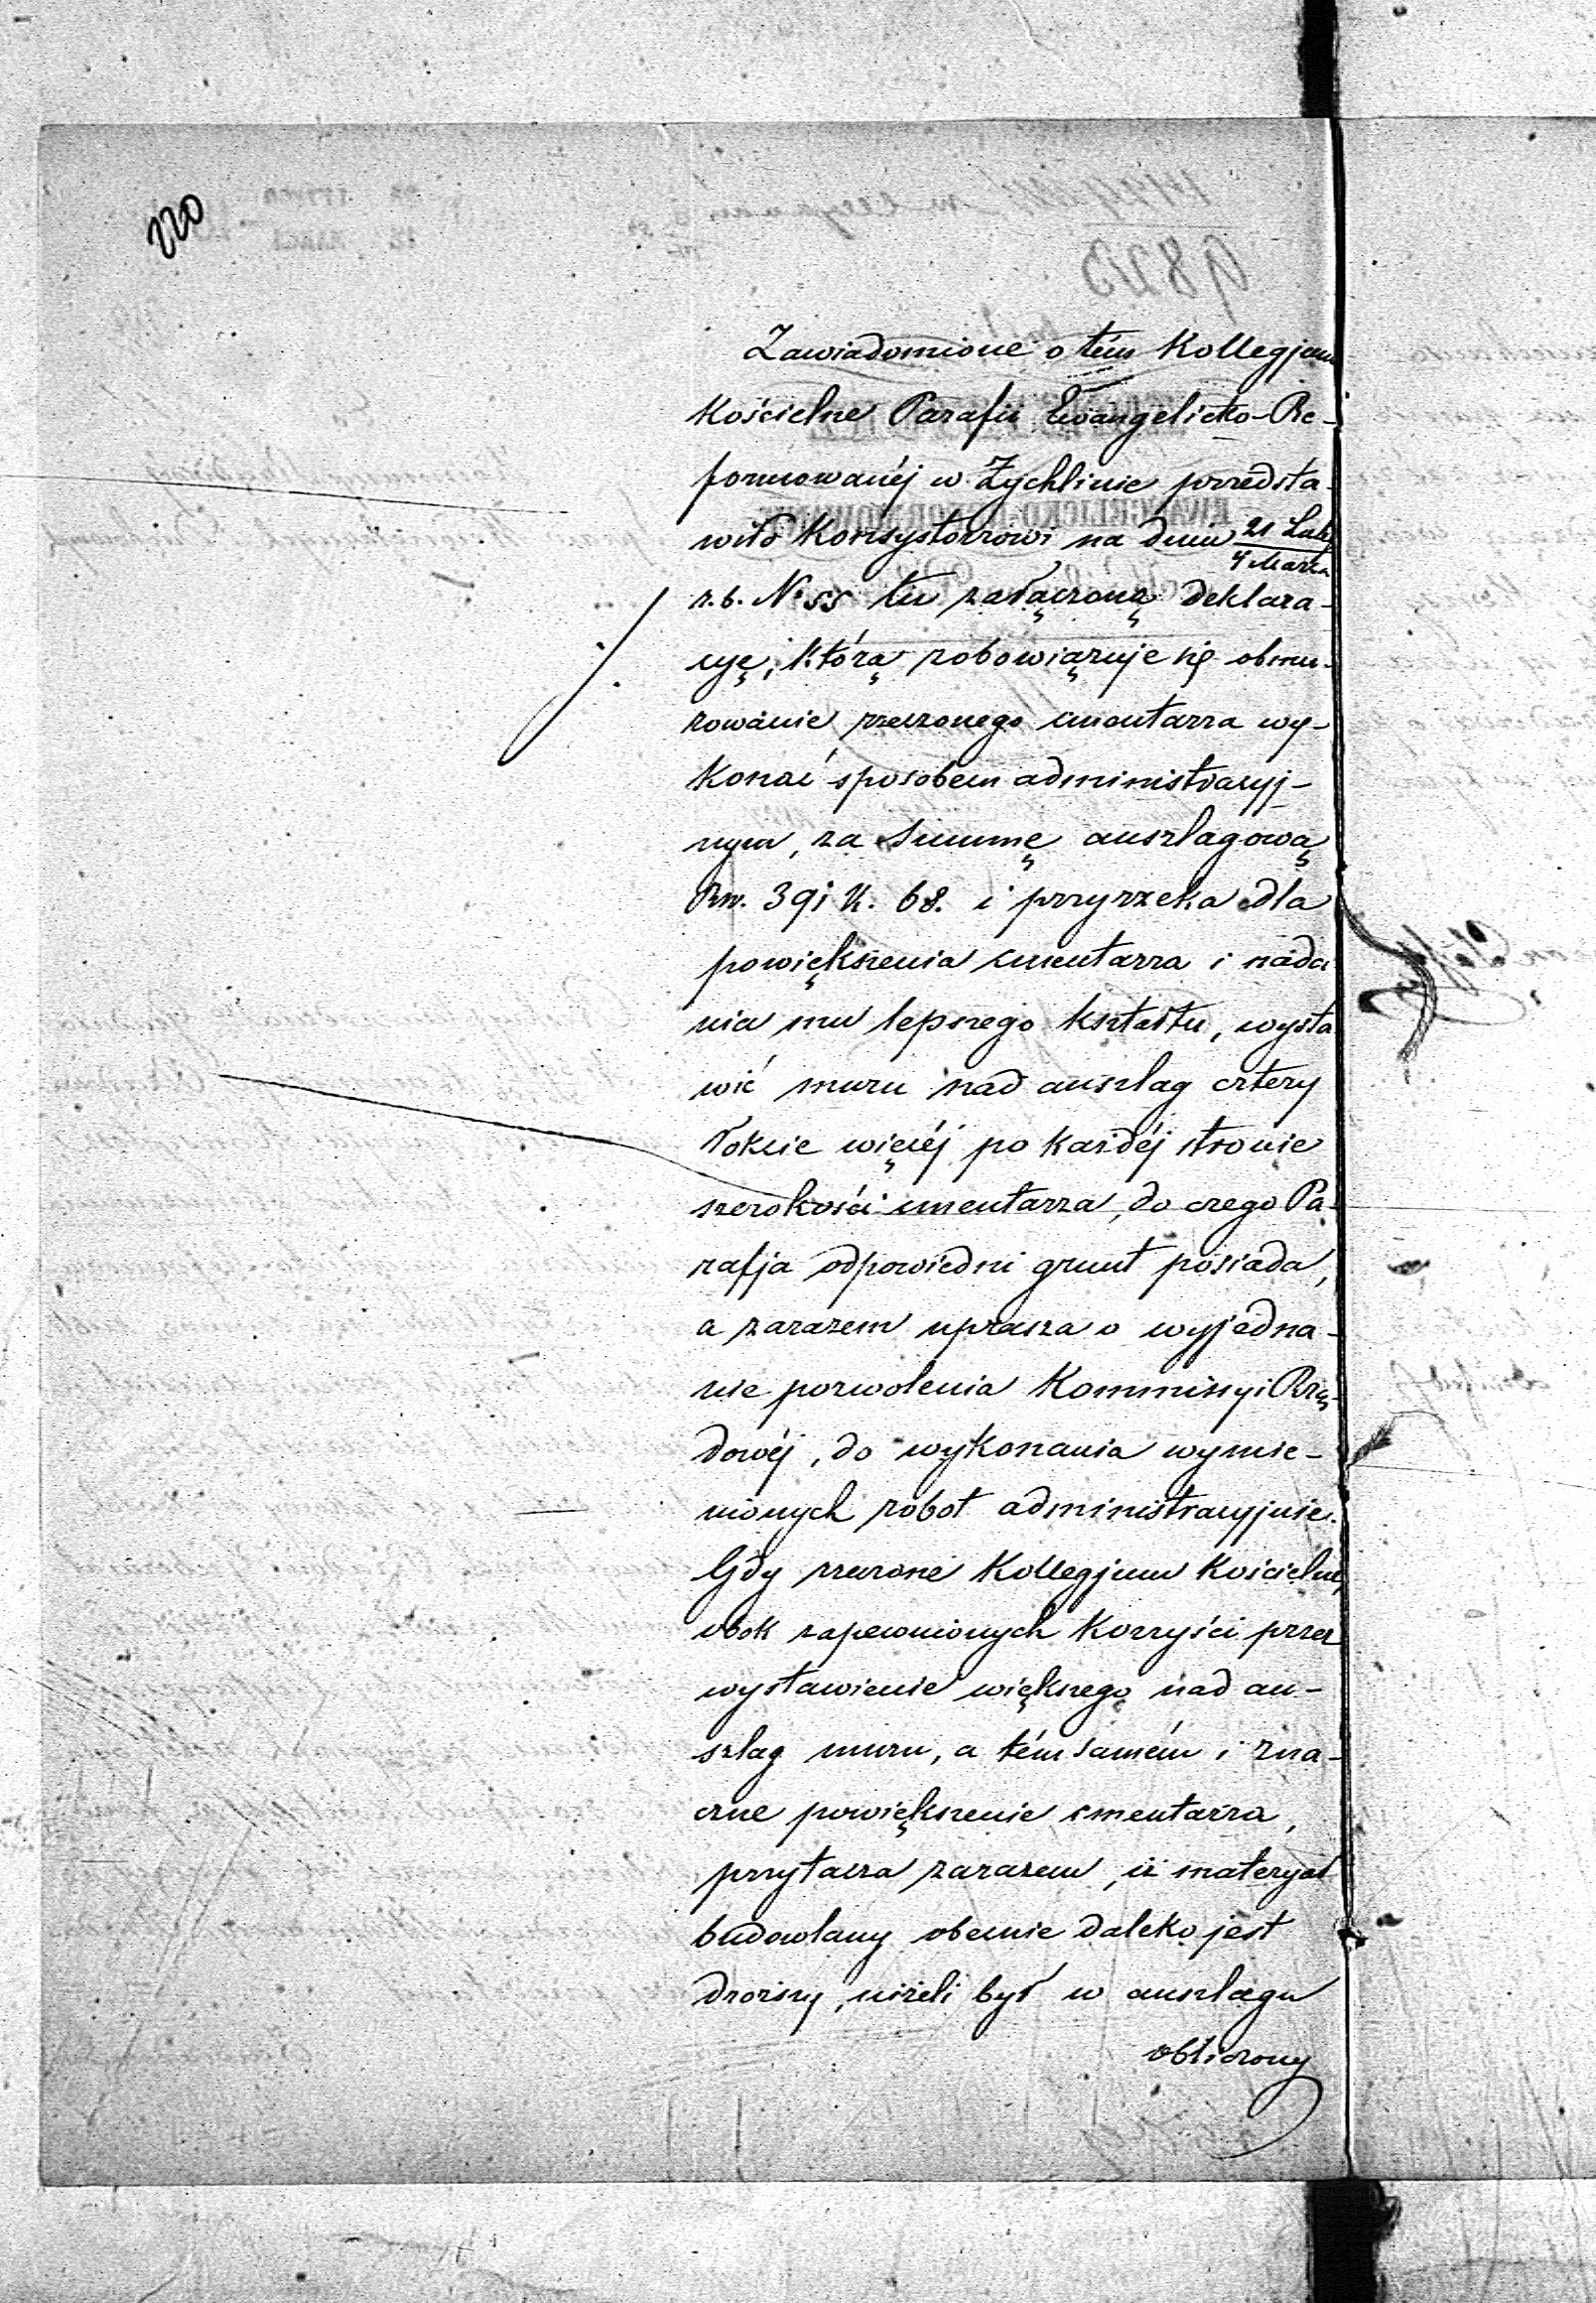 220
Zawiadomione o tém Kollegjum
Kościelne Parafii Ewangelicko-Re-
formowanéj w Żychlinie przedsta-
wiło Konsystorzowi na dniu 21 Luteg/4 Marca
r. b. No 55 tu załączoną deklara-
cyę, którą zobowiązuje się obmu-
rowanie rzeczonego cmentarza wy-
konać sposobem administracyj-
nym, za Summę anszlagową
Rsr. 391 k. 68. i przyrzeka dla
powiększenia cmentarza i nada
nia mu lepszego kształtu, wysta
wić muru nad anszlag cztery
łokcie więcéj po każdéj stronie
szerokości cmentarza, do czego Pa-
rafja odpowiedni grunt posiada,
a zarazem uprasza o wyjedna-
nie pozwolenia Kommissyi Rzą-
dowéj, do wykonania wymie-
nionych robot administracyjnie.
Gdy rzeczone Kollegjum Kościelne,
obok zapewnionych korzyści przez
wystawienie większego nad an-
szlag muru, a témsamém i zna-
czne powiększenie cmentarza,
przytacza zarazem, iż materyał
budowlany obecnie daleko jest
droższy, niżeli był w anszlagu
obliczony